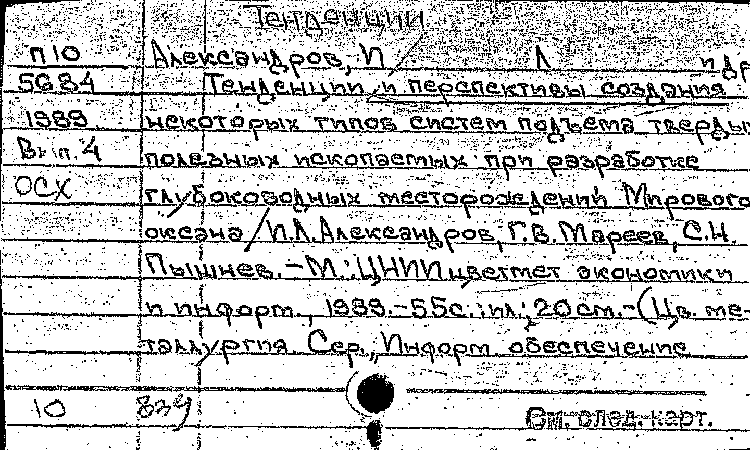 Тенденции
П10 Александров, И. Л. и др
5684 Тенденции и перспективы создания
1989 некоторых типов систем подъема тверды
Вып. 4 полезных ископаемых при разработке
ОСХ глубоководных месторождений Мирового
океана / И.Л. Александров, Г.В. Мареев, С.Н.
Пышнев. - М.: ЦНИИцветмет экономики
и информ., 1989. - 55с.: ил.; 20 см. - (Цв. ме-
таллургия. Сер., Информ. обеспечение
10 839 См. след. карт.